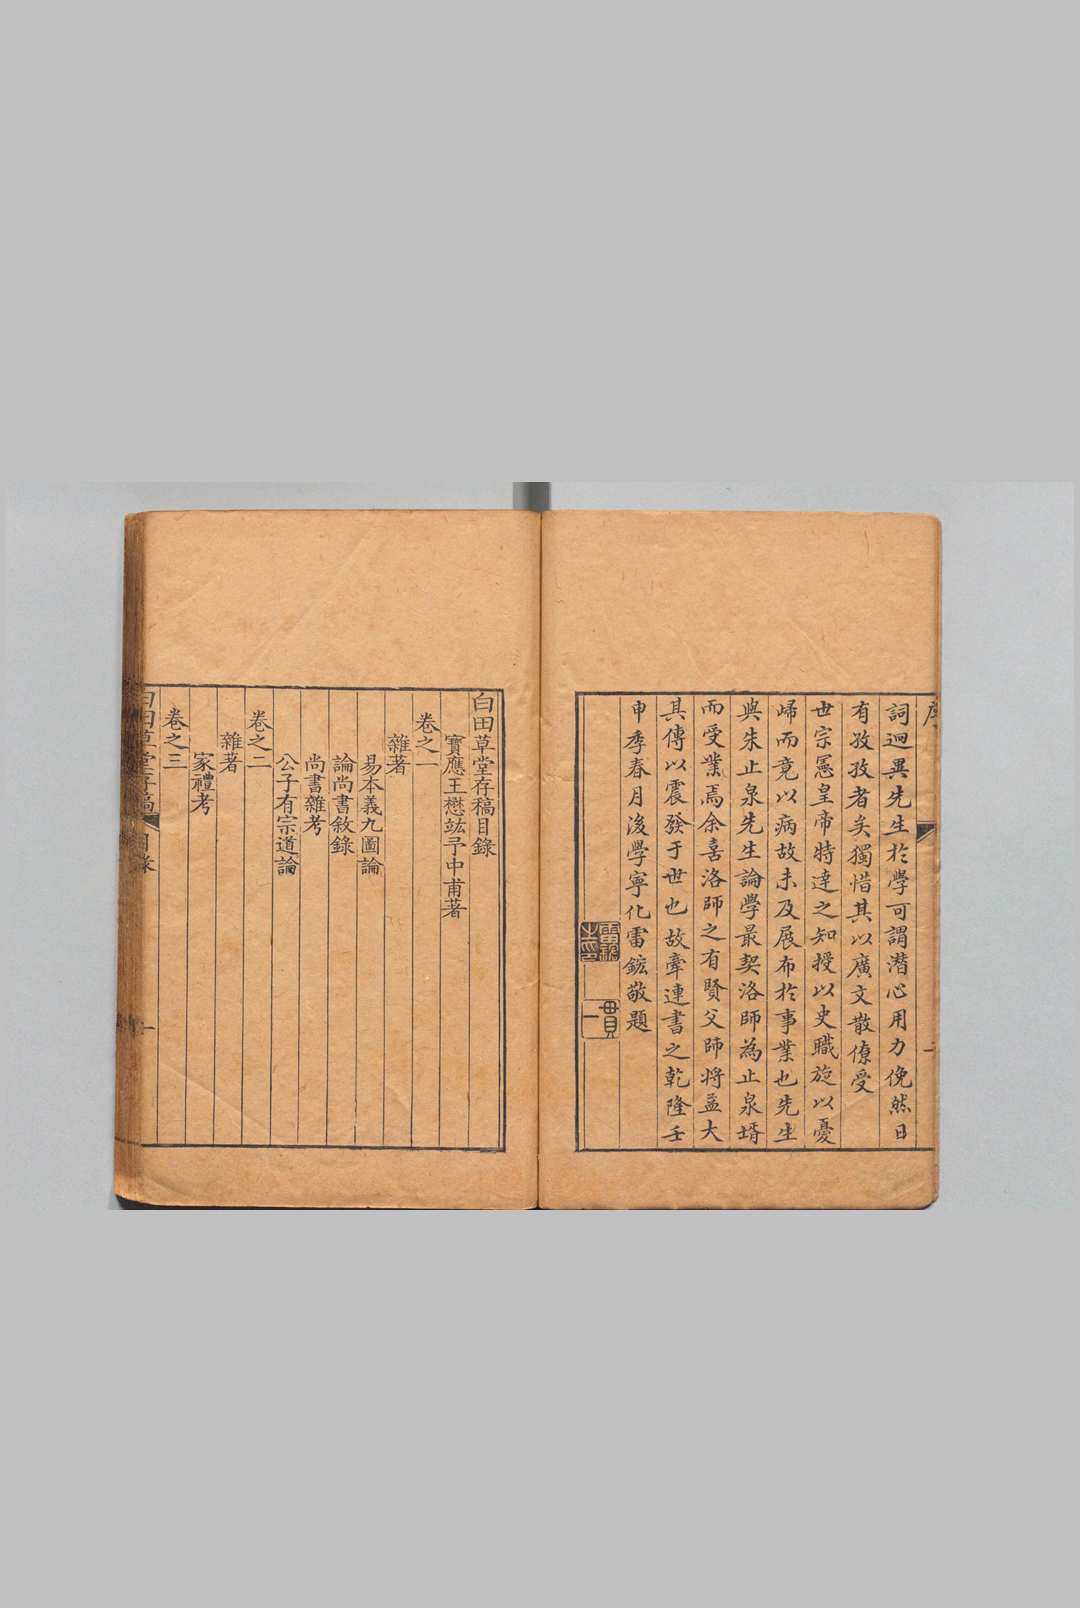 詞迥異先生於學可謂潛心用力俛然日
有孜孜者矣獨惜其以廣文散僚受
世宗憲皇帝特達之知授以史職旋以憂
歸而竟以病故未及展布於事業也先生
與朱止泉先生論學最契洛師為止泉壻
而受業焉余喜洛師之有賢父師將益大
其傳以震發于世也故牽連書之乾隆壬
申季春月後學寧化雷鋐敬題
貫一
白田草堂存稿目錄
寶應王懋竑予中甫著
卷之一
雜著
易本義九圖論
論尚書敘錄
尚書雜考
公子有宗道論
卷之二
雜著
家禮考
卷之三
白田草堂存稿 目錄 一